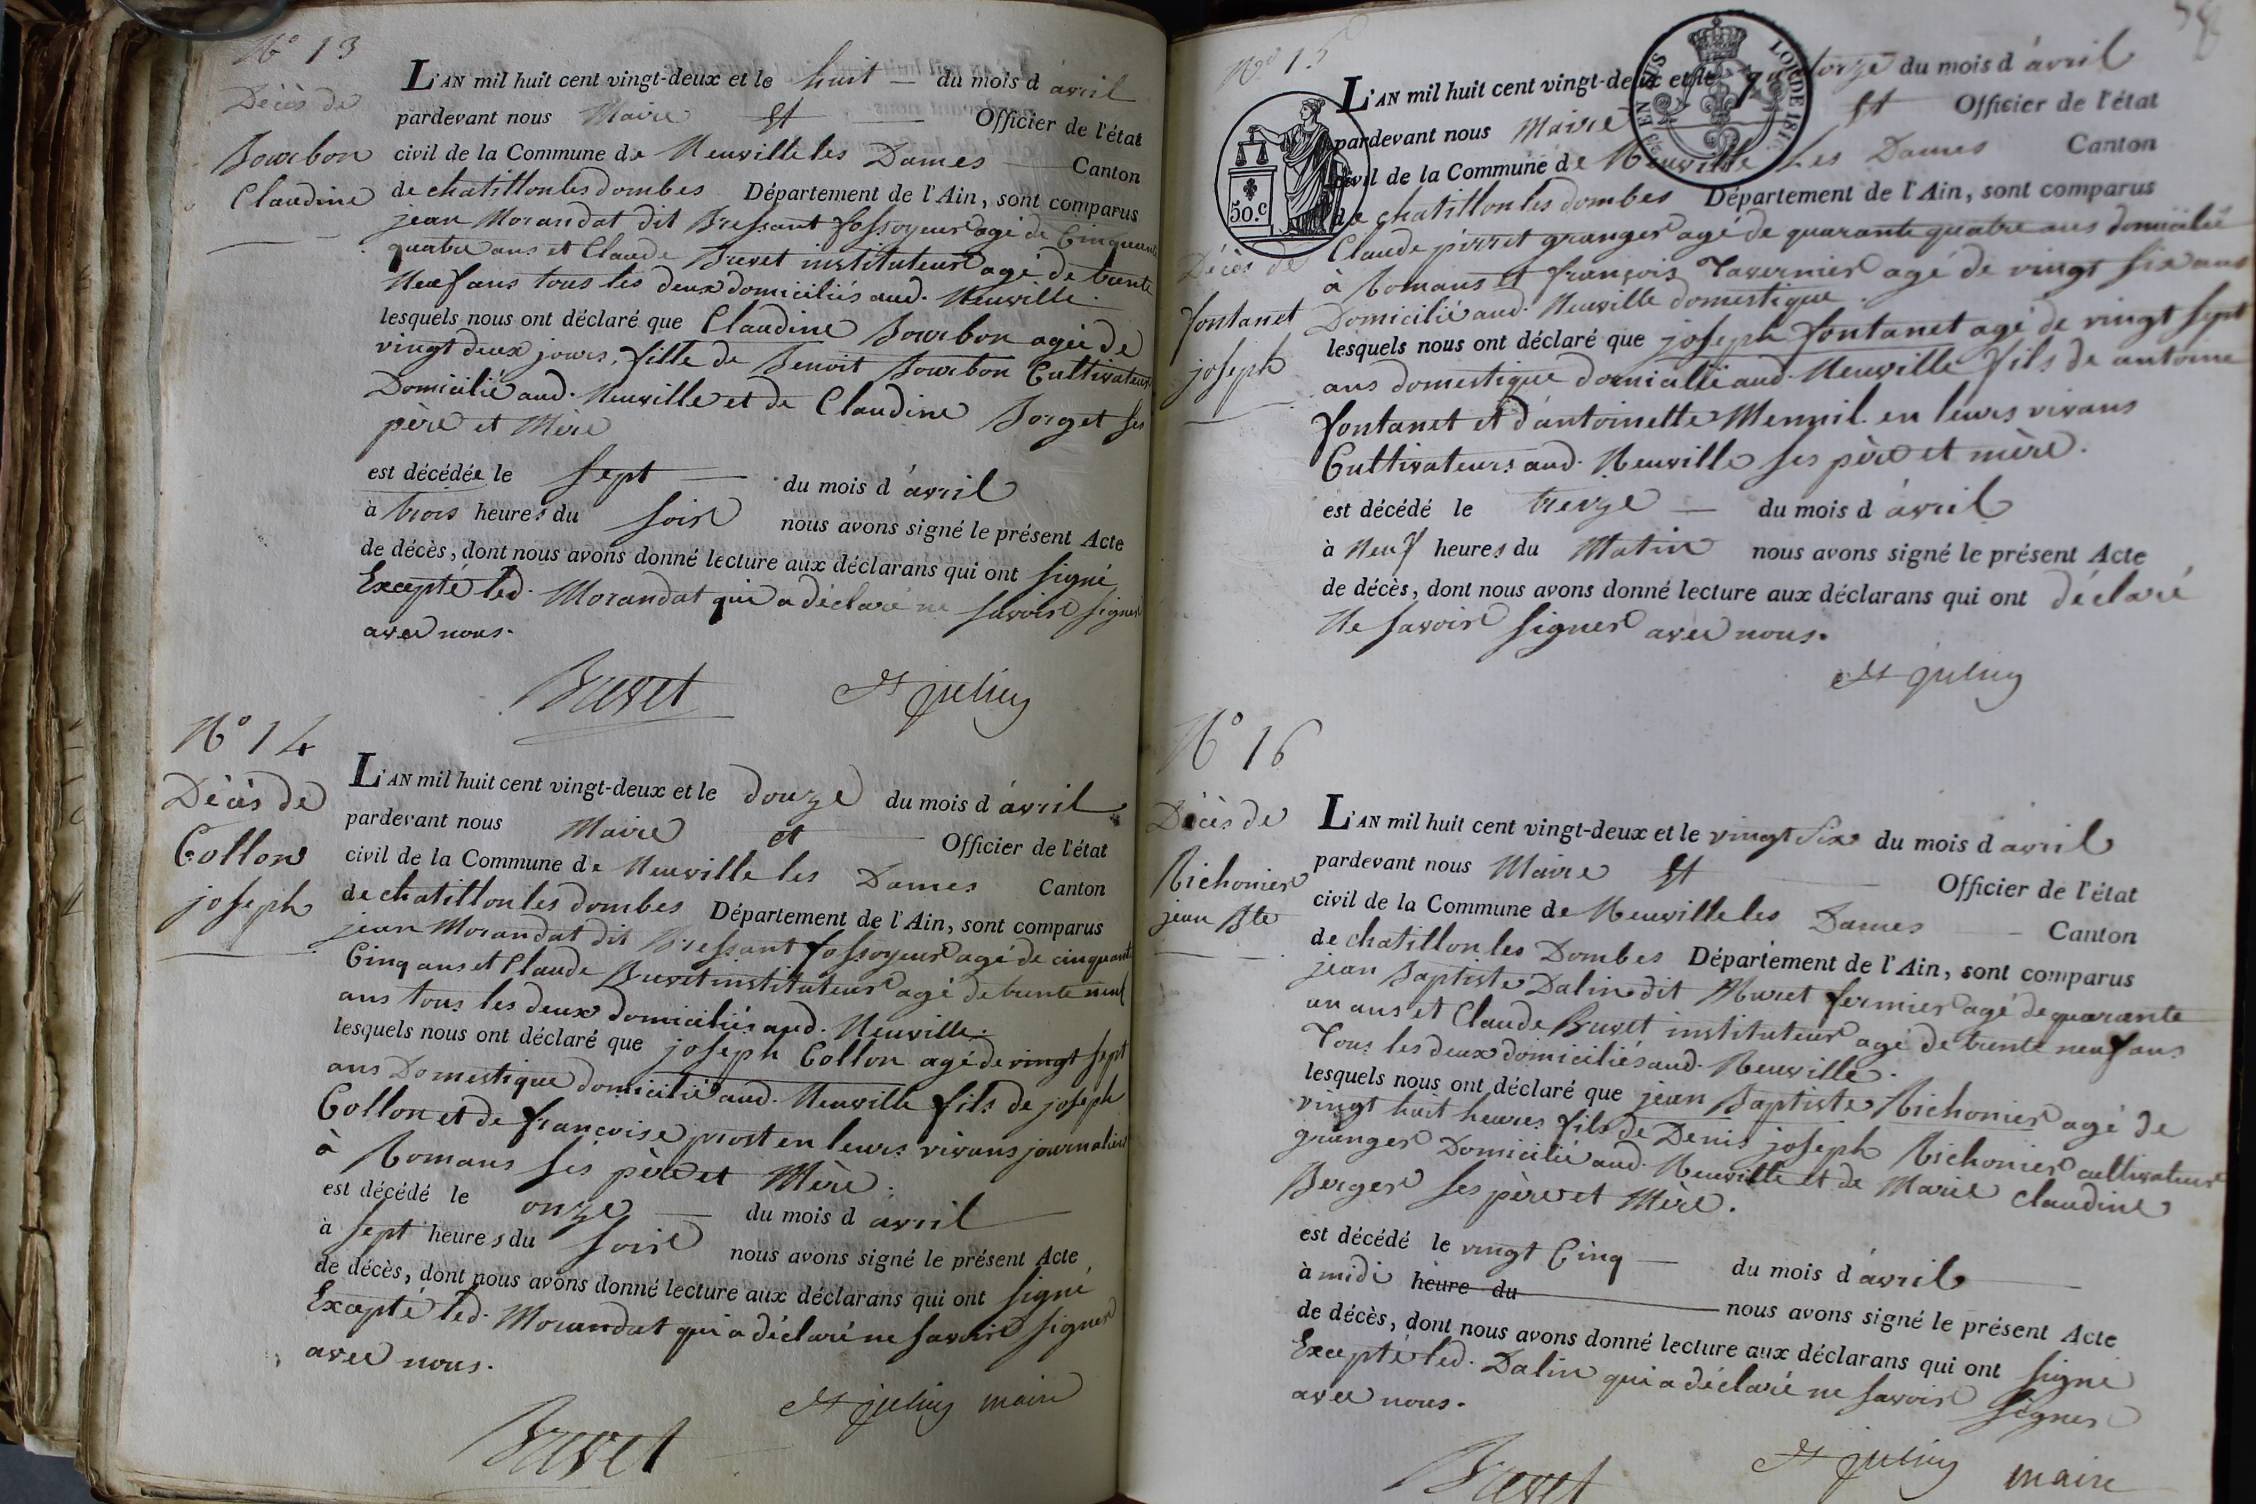 N° 13
Décès de
Bourbon
Claudine
L'AN mil huit cent vingt-deux et le huit — du mois d'avril
pardevant nous Maire Et — Officier de l'état
civil de la Commune de Neuville les Dames — Canton
de chatillon les dombes Département de l'Ain, sont comparus
jean Morandat dit Bressant fossoyeur agé de Cinquante
quatre ans et Claude Buvet instituteur agé de trente
Neuf ans tous les deux domiciliés aud. Neuville.
lesquels nous ont déclaré que Claudine Bourbon agée de
vingt deux jours, fille de Benoit Bourbon Cultivateur
Domicilié aud. Neuville et de Claudine Borget ses
père et Mère
est décédée le sept — du mois d'avril
à trois heures du soir nous avons signé le présent Acte
de décès, dont nous avons donné lecture aux déclarans qui ont signé
Excepté led. Morandat qui a déclaré ne savoir signer
avec nous.
Buvet St julien
N° 14
Décès de
Collon
joseph
L'AN mil huit cent vingt-deux et le douze du mois d'avril
pardevant nous Maire et — Officier de l'état
civil de la Commune de Neuville les Dames Canton
de chatillon les dombes Département de l'Ain, sont comparus
jean Morandat dit Bressant fossoyeur agé de cinquante
Cinq ans et Claude Buvet instituteur agé de trente neuf
ans tous les deux domiciliés aud. Neuville.
lesquels nous ont déclaré que joseph Collon agé de vingt sept
ans Domestique domicilié aud. Neuville fils de joseph
Collon et de françoise prost en leurs vivans journaliers
à Romans ses père et Mère.
est décédé le onze — du mois d avril
à sept heures du soir nous avons signé le présent Acte
de décès, dont nous avons donné lecture aux déclarans qui ont signé
Excepté led. Morandat qui a déclaré ne savoir signer
avec nous.
St julien maire
Buvet
58
N° 15
50.c
Décès de
fontanet
joseph
L'AN mil huit cent vingt-deux et le du mois d'avril
pardevant nous Maire Et Officier de l'état
civil de la Commune de Neuville Les Dames Canton
de chatillon les dombes Département de l'Ain, sont comparus
Claude pirret granger agé de quarante quatre ans domicilié
à Romans et françois Tavernier agé de vingt six ans
Domicilié aud. Neuville domestique.
lesquels nous ont déclaré que joseph fontanet agé de vingt sept
ans domestique domicilié aud. Neuville fils de antoine
fontanet et d'antoinette Mennil en leurs vivans
Cultivateurs aud. Neuville ses père et mère.
est décédé le treize — du mois d'avril
à Neuf heures du Matin nous avons signé le présent Acte
de décès, dont nous avons donné lecture aux déclarans qui ont déclaré
Ne savoir signer avec nous.
St julien
N° 16
Décès de
Richonier
jean Bte
L'AN mil huit cent vingt-deux et le vingt Six du mois d'avril
pardevant nous Maire Et — Officier de l'état
civil de la Commune de Neuville les Dames — Canton
de chatillon les Dombes Département de l'Ain, sont comparus
jean Baptiste Dalin dit Muret fermier agé de quarante
un ans et Claude Buvet instituteur agé de trente neuf ans
Tous les deux domiciliés aud. Neuville.
lesquels nous ont déclaré que jean Baptiste Richonier agé de
vingt huit heures fils de Denis joseph Richonier cultivateur
granger Domicilié aud. Neuville et de Marie Claudine
Berger ses père et Mère.
est décédé le vingt Cinq — du mois d'avril
à midi heure du — nous avons signé le présent Acte
de décès, dont nous avons donné lecture aux déclarans qui ont signé
Excepté led. Dalin qui a déclaré ne savoir signer
avec nous.
Buvet St julien maire